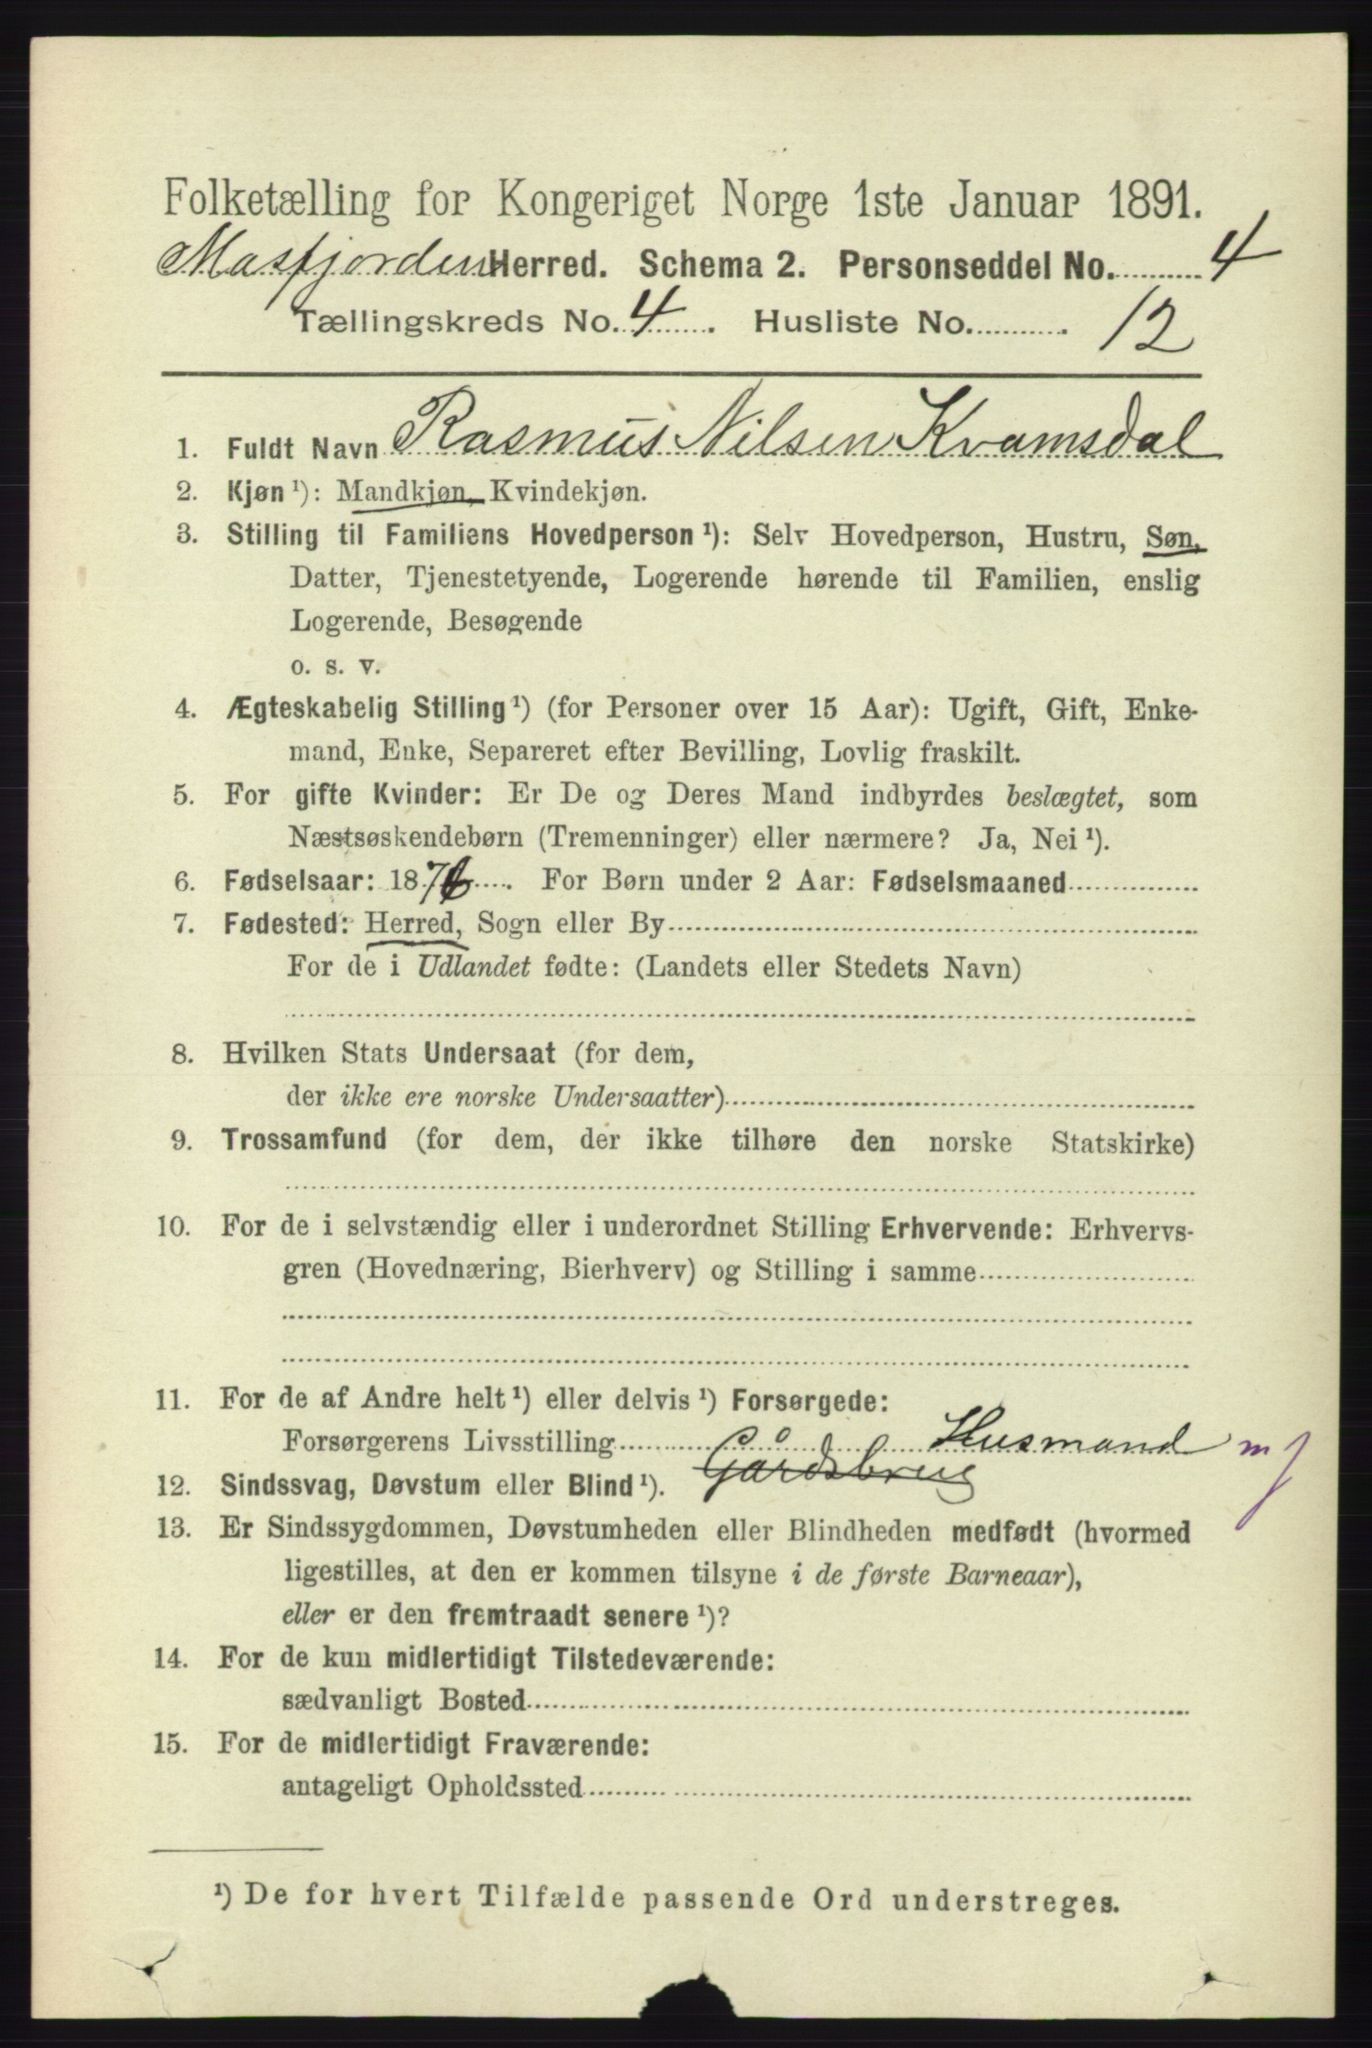 Folketælling for Kongeriget Norge 1ste Januar 1891.
Masfjorden Herred. Schema 2. Personseddel No. 4
Tællingskreds No. 4. Husliste No. 12
1. Fuldt Navn Rasmus Nilsen Kvamsdal
2. Kjøn ¹): Mandkjøn, Kvindekjøn.
3. Stilling til Familiens Hovedperson ¹): Selv Hovedperson, Hustru, Søn,
Datter, Tjenestetyende, Logerende hørende til Familien, enslig
Logerende, Besøgende
o. s. v.
4. Ægteskabelig Stilling ¹) (for Personer over 15 Aar): Ugift, Gift, Enke-
mand, Enke, Separeret efter Bevilling, Lovlig fraskilt.
5. For gifte Kvinder: Er De og Deres Mand indbyrdes beslægtet, som
Næstsøskendebørn (Tremenninger) eller nærmere? Ja, Nei ¹).
6. Fødselsaar: 187 . For Børn under 2 Aar: Fødselsmaaned
7. Fødested: Herred, Sogn eller By
For de i Udlandet fødte: (Landets eller Stedets Navn)
8. Hvilken Stats Undersaat (for dem,
der ikke ere norske Undersaatter)
9. Trossamfund (for dem, der ikke tilhøre den norske Statskirke)
10. For de i selvstændig eller i underordnet Stilling Erhvervende: Erhvervs-
gren (Hovednæring, Bierhverv) og Stilling i samme
11. For de af Andre helt ¹) eller delvis ¹) Forsørgede:
Forsørgerens Livsstilling Husmand m j
Gårdsbrug
12. Sindssvag, Døvstum eller Blind ¹).
13. Er Sindssygdommen, Døvstumheden eller Blindheden medfødt (hvormed
ligestilles, at den er kommen tilsyne i de første Barneaar),
eller er den fremtraadt senere ¹)?
14. For de kun midlertidigt Tilstedeværende:
sædvanligt Bosted
15. For de midlertidigt Fraværende:
antageligt Opholdssted
¹) De for hvert Tilfælde passende Ord understreges.